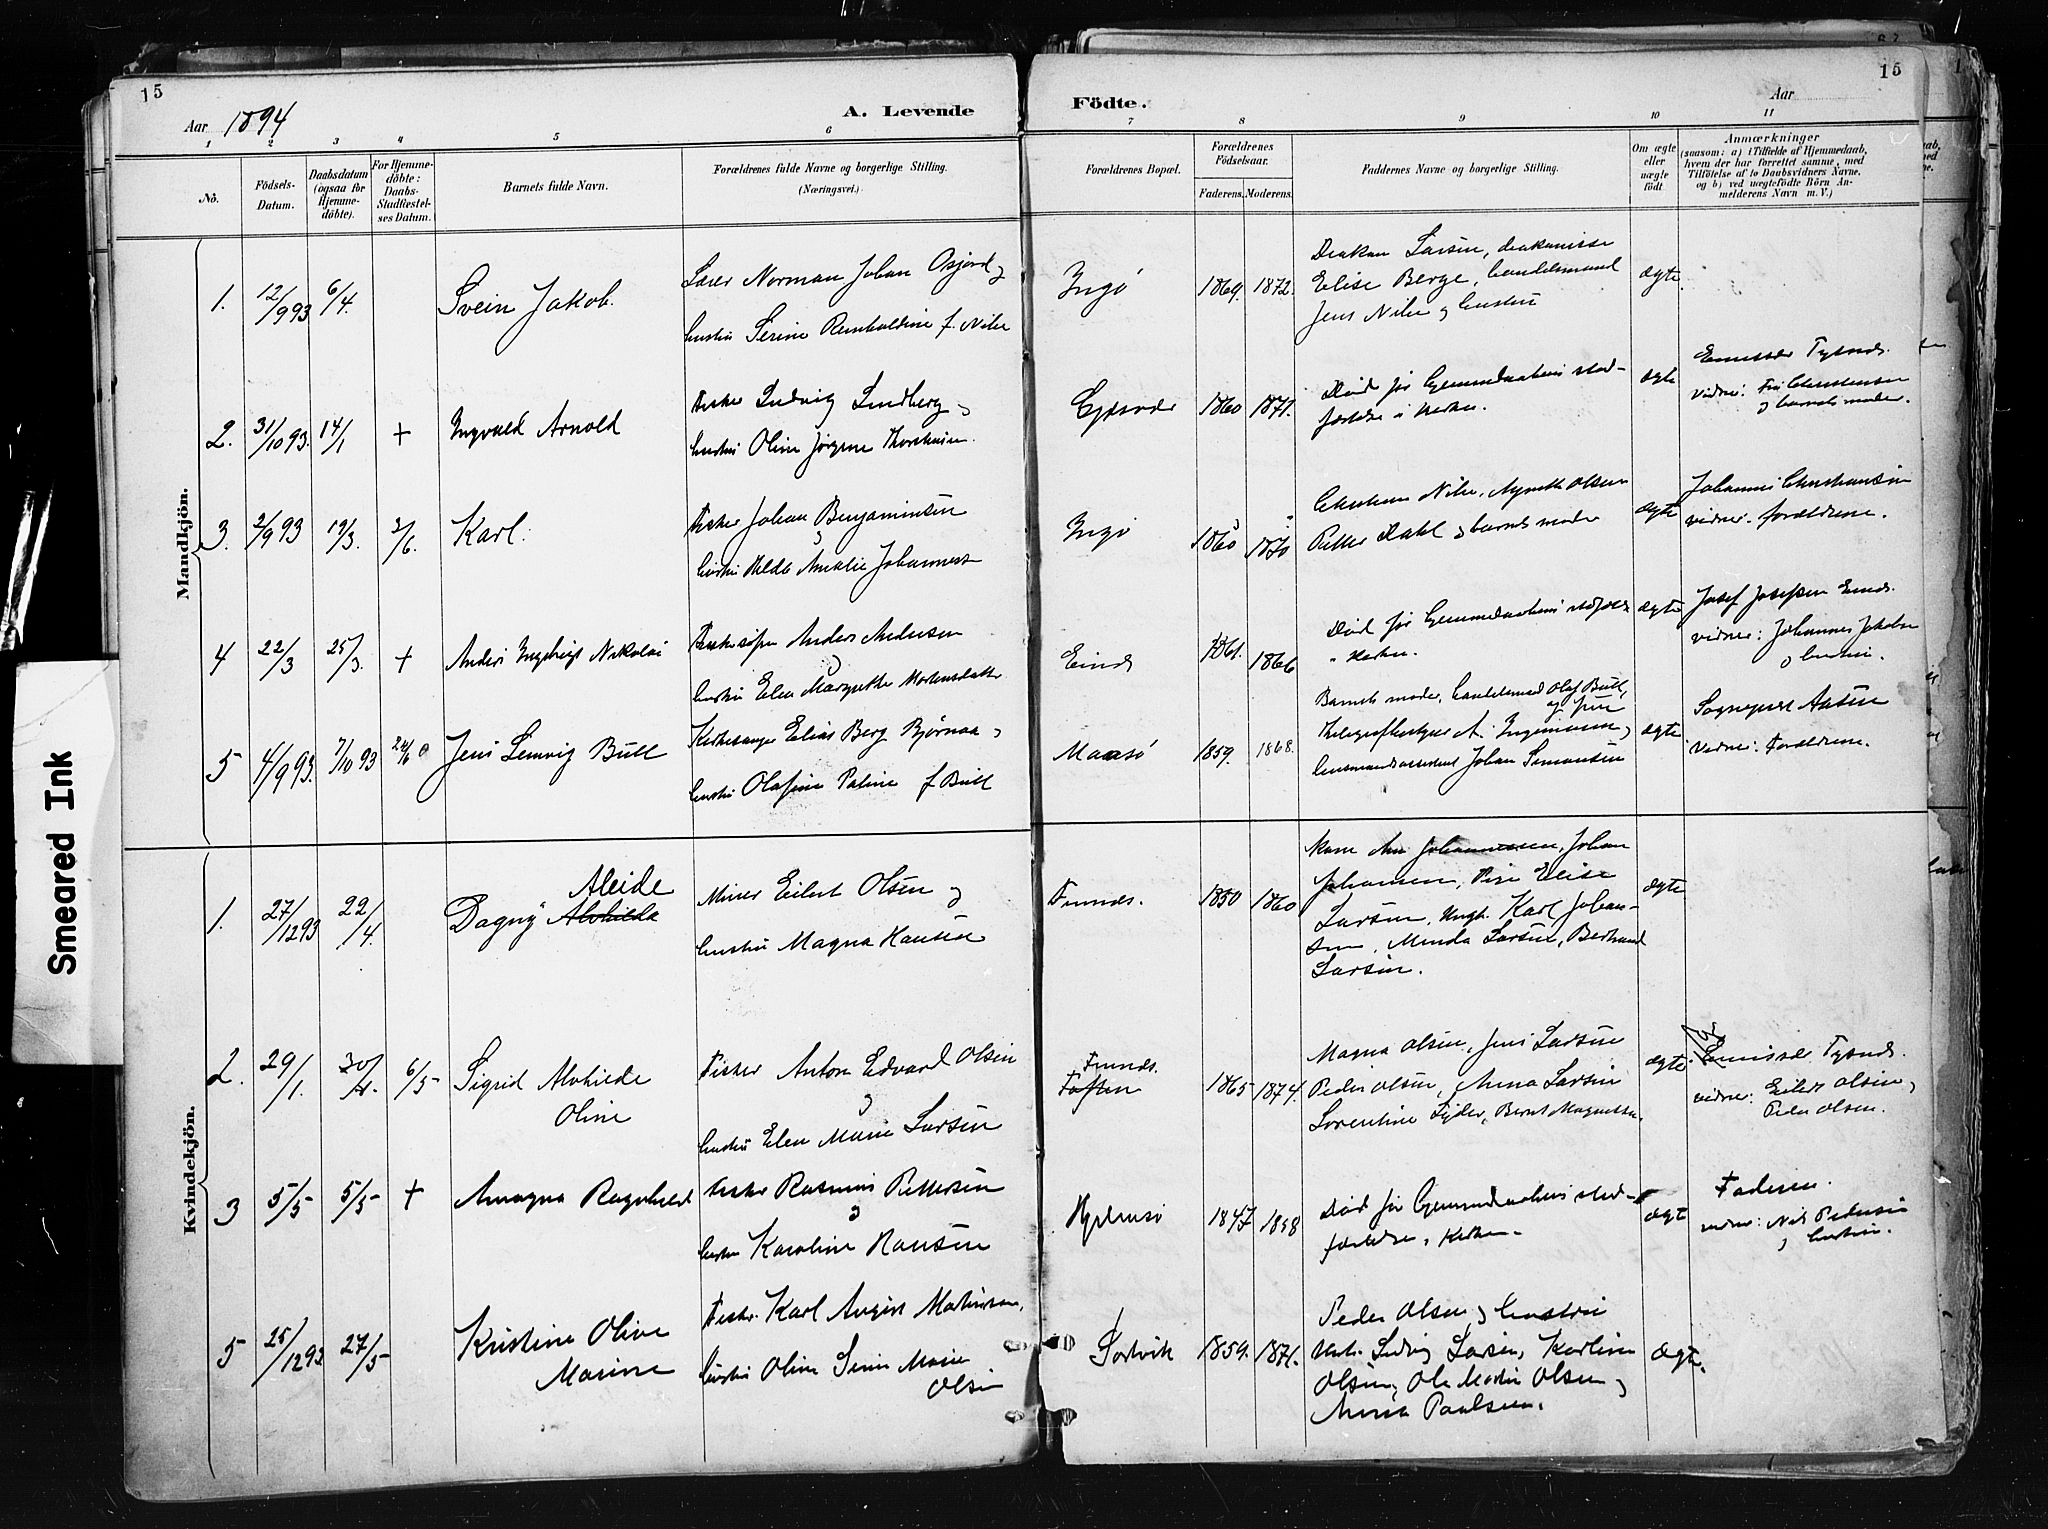 15
Aar 1894
A. Levende
Födte.
15
Aar
1 2 3 4 5 6 7 8 9 10 11
No.
Födsels-
Datum.
Daabsdatum
(ogsaa for
Hjemme-
döbte).
For Hjemme-
döbte:
Daabs-
Stadfæstel-
ses Datum.
Barnets fulde Navn.
Forældrenes fulde Navne og borgerlige Stilling.
(Næringsvei.)
Forældrenes Bopæl.
Forældrenes
Födselsaar.
Faderens. Moderens.
Faddernes Navne og borgerlige Stilling.
Om ægte
eller
uægte
födt.
Anmærkninger
(saasom: a) i Tilfælde af Hjemmedaab,
hvem der har forrettet samme, med
Tilföielse af to Daabsvidners Navne,
og b) ved uægtefödte Börn An-
melderens Navn m. V.)
Mandkjön.
1. 12/9 93 6/4. Svein Jakob.
Lærer Norman Johan Osjord og
hustru Serine Reinholdine f. Nilse
Ingö 1869. 1872.
Diakon Larsen, diakonisse
Elise Berge, handelsmand
Jens Nilse og hustru
ægte.
2. 31/10 93. 14/1 + Ingvald Arnold
Fisker Ludvig Lindberg og
hustru Oline Jörgine Thorsteinsen.
1860 1871.
Död för Hjemmedaabens stad-
fæstelse i Kirken.
ægte
Emissær Tysnds.
vidner: Fru Christensen
og barnets moder.
3. 2/9 93 19/3. 3/6. Karl.
Fisker Johan Benjaminsen
og
hustru Hilda Amalie Johannesd
Ingö 1860 1870
Nilse, Agnethe Olsen
Petter Dahl og barnets moder
ægte
Johannes Christiansen
vidner. forældrene.
4 22/3 25/3. + Anders Ingebrigt Nikolai
Anders Andersen
og
hustru Elen Margrethe Mortensdatter
1861. 1866
Död för Hjemmedaabens stadfæst
i Kirken.
ægte
Josef Josefsen
vidner: Johannes Jakobsen
og hustru.
5 4/9 93. 7/10 93 24/6 Jens Lemvig Bull
Kirkesanger Elias Berg Björnaa og
hustru Olafine Paline f Bull
Maasö 1859. 1868.
Barnets moder, handelsmd Olaf Bull,
og frue
Telegrafbestyrer A. Ingemann og
lensmandsassistent Johan Simonsen
ægte
Sogneprest Aasen
vidner: Forældrene.
Kvindekjön.
1. 27/12 93 22/4. Dagny Alvhilda
Aleide
Miner Eilert Olsen og
hustru Magna Hansen
1850 1860
Johannessen, Johan
Johansen, Pige Elise
Larsen, Ungk. Karl Johan-
sen, Minda Larsen, Bertrand
Larsen.
ægte
2. 29/1. 30/4. 6/5 Sigrid Alvhilde
Oline
Fisker Anton Edvard Olsen
og
hustru Elen Marie Larsen
1865 1874.
Magna Olsen, Jens Larsen
Peder Olsen, Anna Larsen
ægte
Emissær Tysnds.
vidner: Eilert Olsen og
Peder Olsen.
3 5/5 5/5 + Amagna Ragnhild
Fisker Rasmus Pettersen
og
hustru Karoline Hansen
Hjelmsö 1847 1858
Död för Hjemmedaabens stad-
fæstelse i Kirken.
ægte
Faderen.
vidner: Nils Pedersen
og hustru.
5 25/12 93 27/5 Kristine Olive
Marine
Fisker Karl August Martinsen,
hustru Oline Marie
Olsen
Sortvik 1859. 1871.
Peder Olsen og hustru
Ludvig Larsen, Karline
Olsen, Ole Martin Olsen og
Anna Paulsen.
ægte.
Smeared Ink